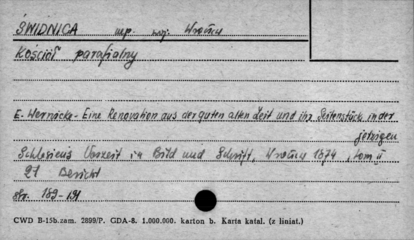 ŚWIDNICA woj. Wrocław
Kościół parafialny
E. Wernicke - Eine Renovation aus der guten alten Zeit und ihr Seitenstück in der
jetzigen
Schlesiens Vorzeit in Bild und Schrift, Wrocław 1874, tom II
21 Bericht
str. 189-191
CWD B-15b. zam. 2899/P. GDA-8. 1.000.000. karton b. Karta katal. (z liniat.)